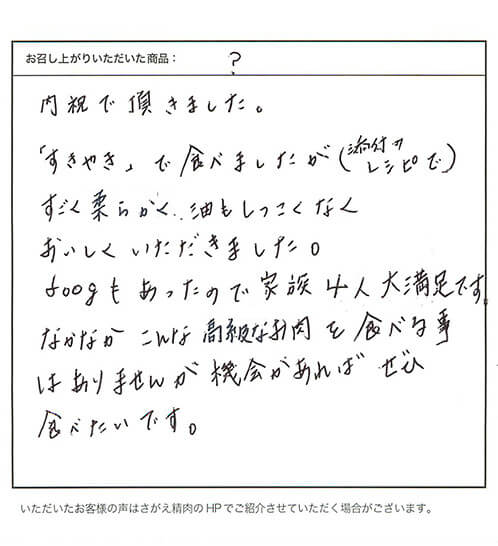 お召し上がりいただいた商品： ?
内祝で頂きました。
「すきやき」で食べましたが(添付のレシピで)
すごく柔らかく、油もしつこくなく
おいしくいただきました。
800gもあったので家族4人大満足です。
なかなかこんな高級なお肉を食べる事
はありませんが機会があればぜひ
食べたいです。
いただいたお客様の声はさがえ精肉のHPでご紹介させていただく場合がございます。